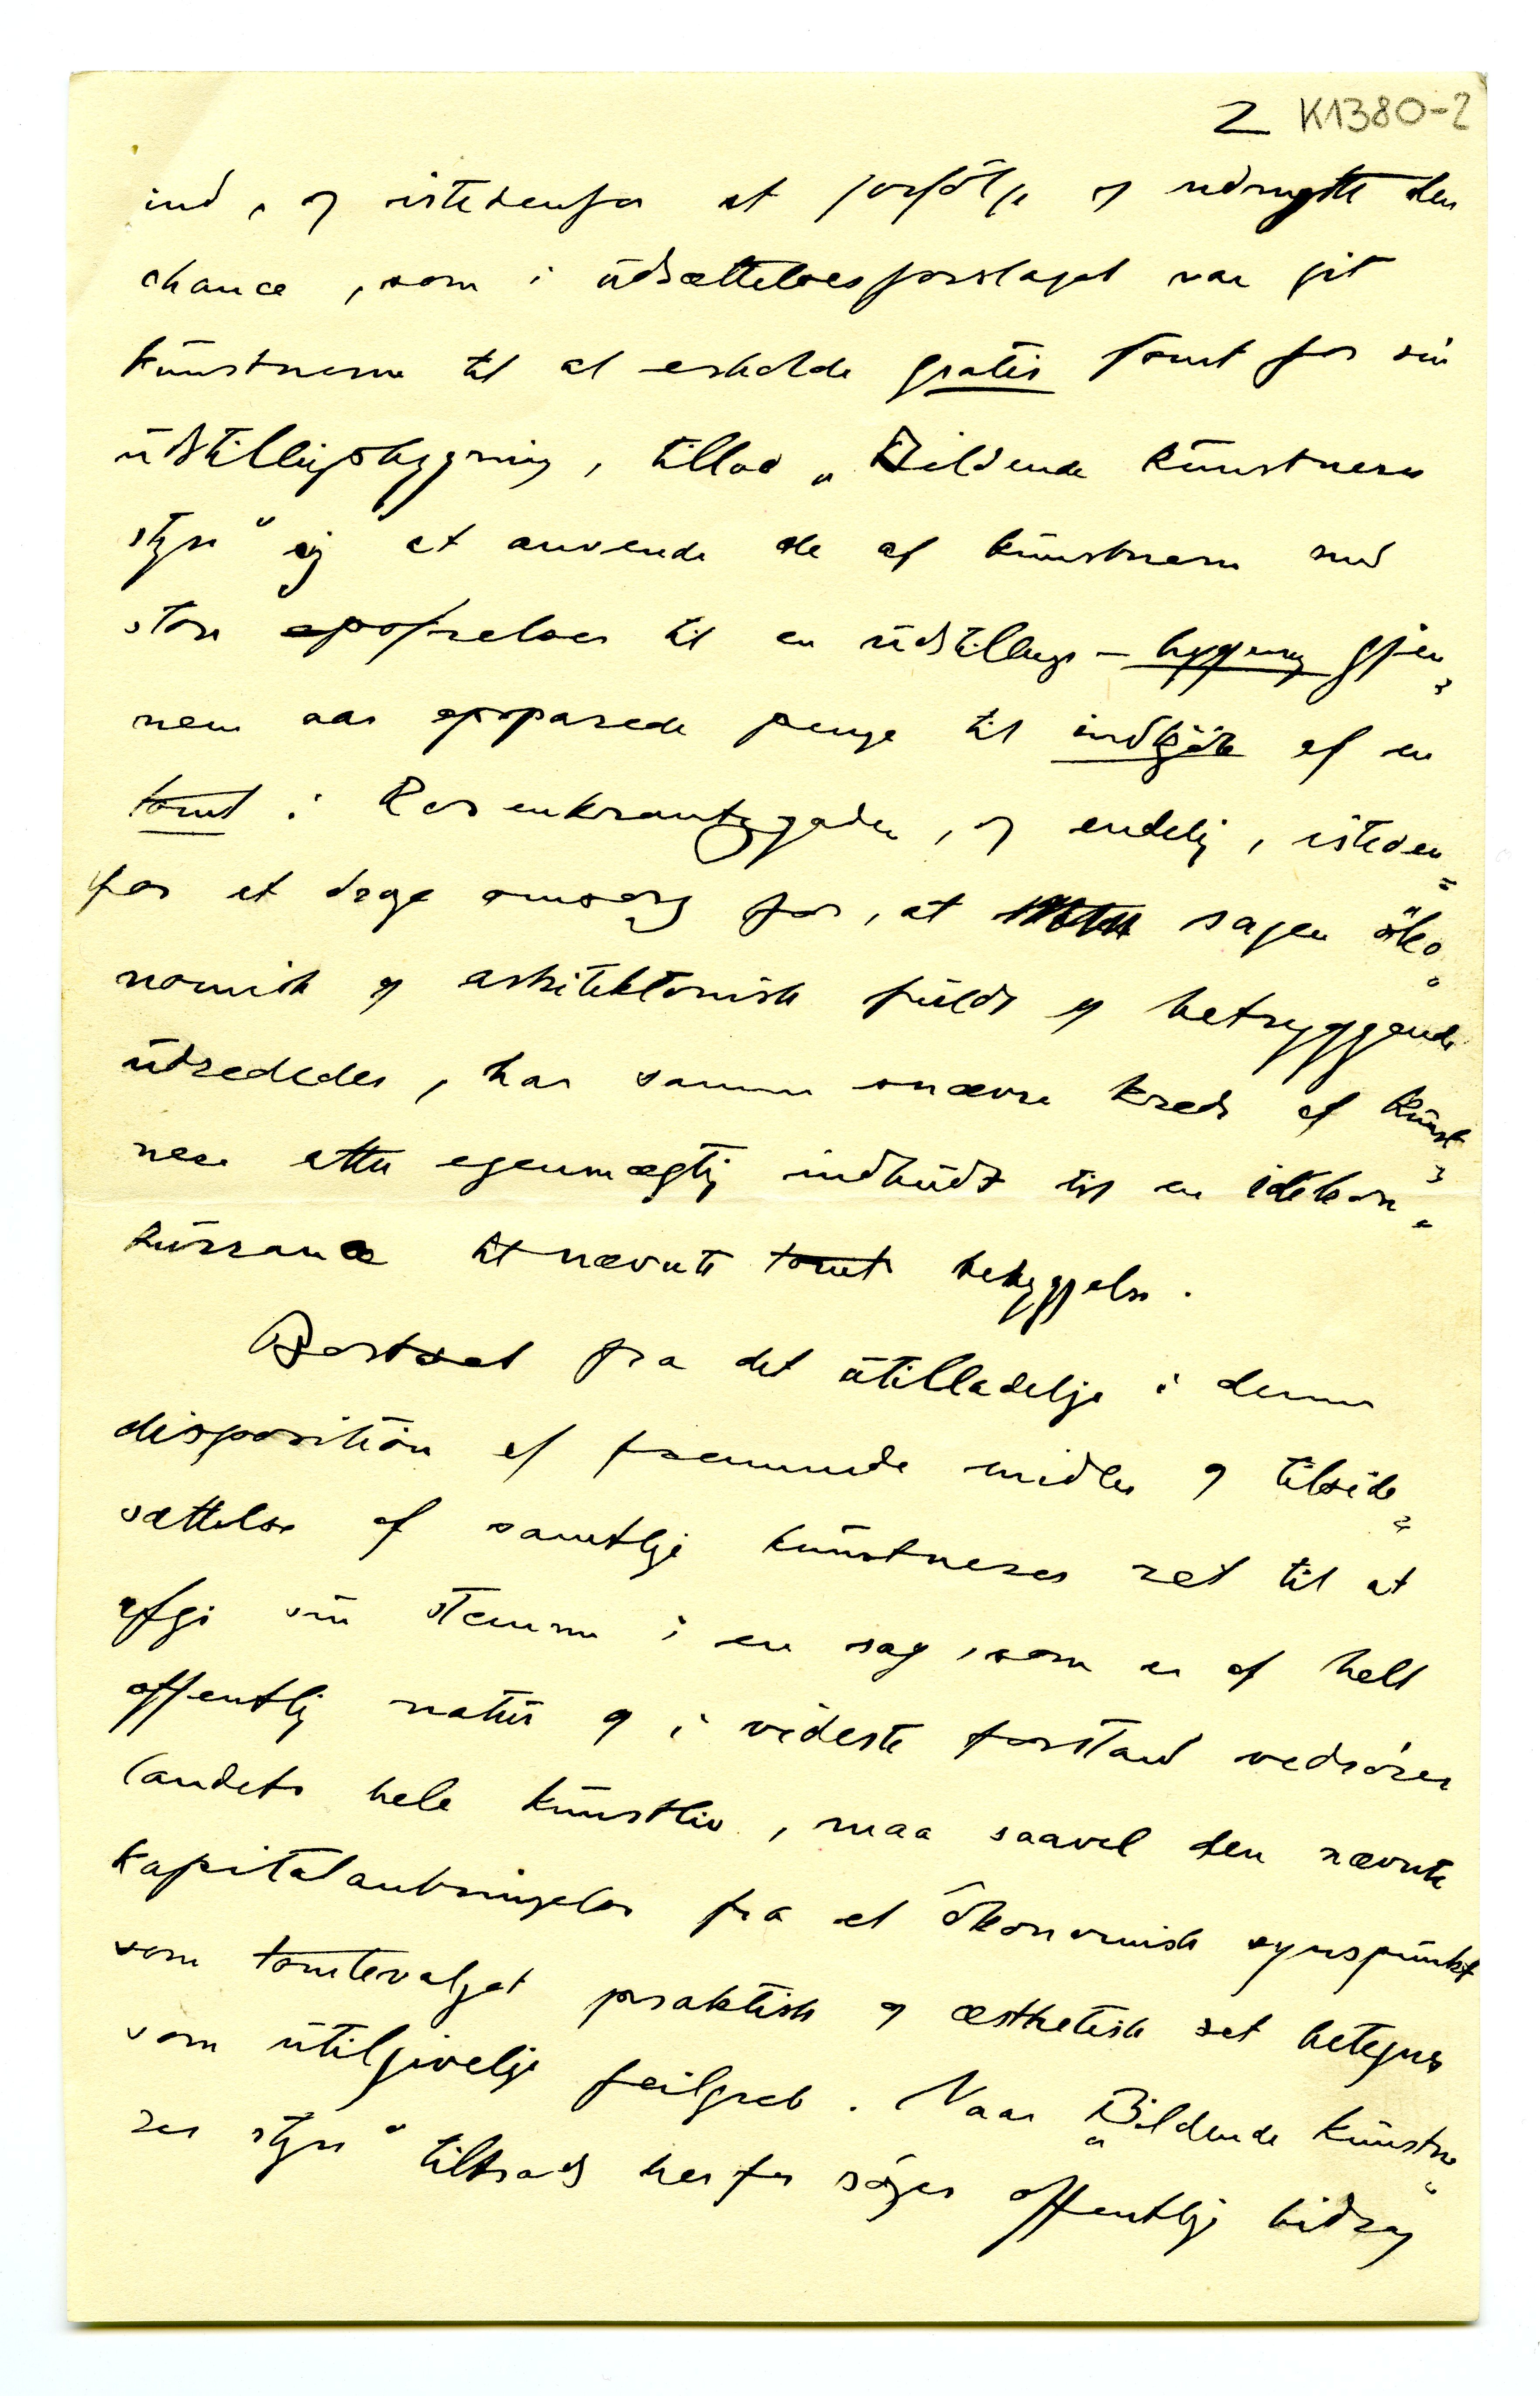 2 K1380-2
ind, og istedenfor at forfölge og udnytte den
chance, som i udsættelsesforslaget var git
kunstnerne til at erholde gratis tomt for sin
udstillingsbygning, tillod „Bildende kunstneres
styre“ sig at anvende de af kunstnerne med
store opofrelser til en udstillings-bygning gjen=
nem aar opsparede penge til indkjöb af en
tomt i Rosenkrantzgaden, og endelig, isteden=
for at drage omsorg for, at sagen öko=
nomisk og arkitektonisk fuldt og betryggende
udrededes, har samme snævre kreds af kunst=
nere atter egenmægtig indbudt til en idekon=
kurrance til nævnte tomts bebyggelse.
Bortset fra det utilladelige i denne
disposition af fremmede midler og tilside=
sættelse af samtlige kunstneres ret til at
afgi sin stemme i en sag, som er af helt
offentlig natur og i videste forstand vedrörer
landets hele kunstliv, maa saavel den nævnte
kapitalanbringelse fra et ökonomisk synspunkt
som tomtevalget praktisk og æsthetisk set betegnes
som utilgivelige feilgreb. Naar „Bildende kunstne=
res styre“ tiltrods herfor söger offentlige bidrag